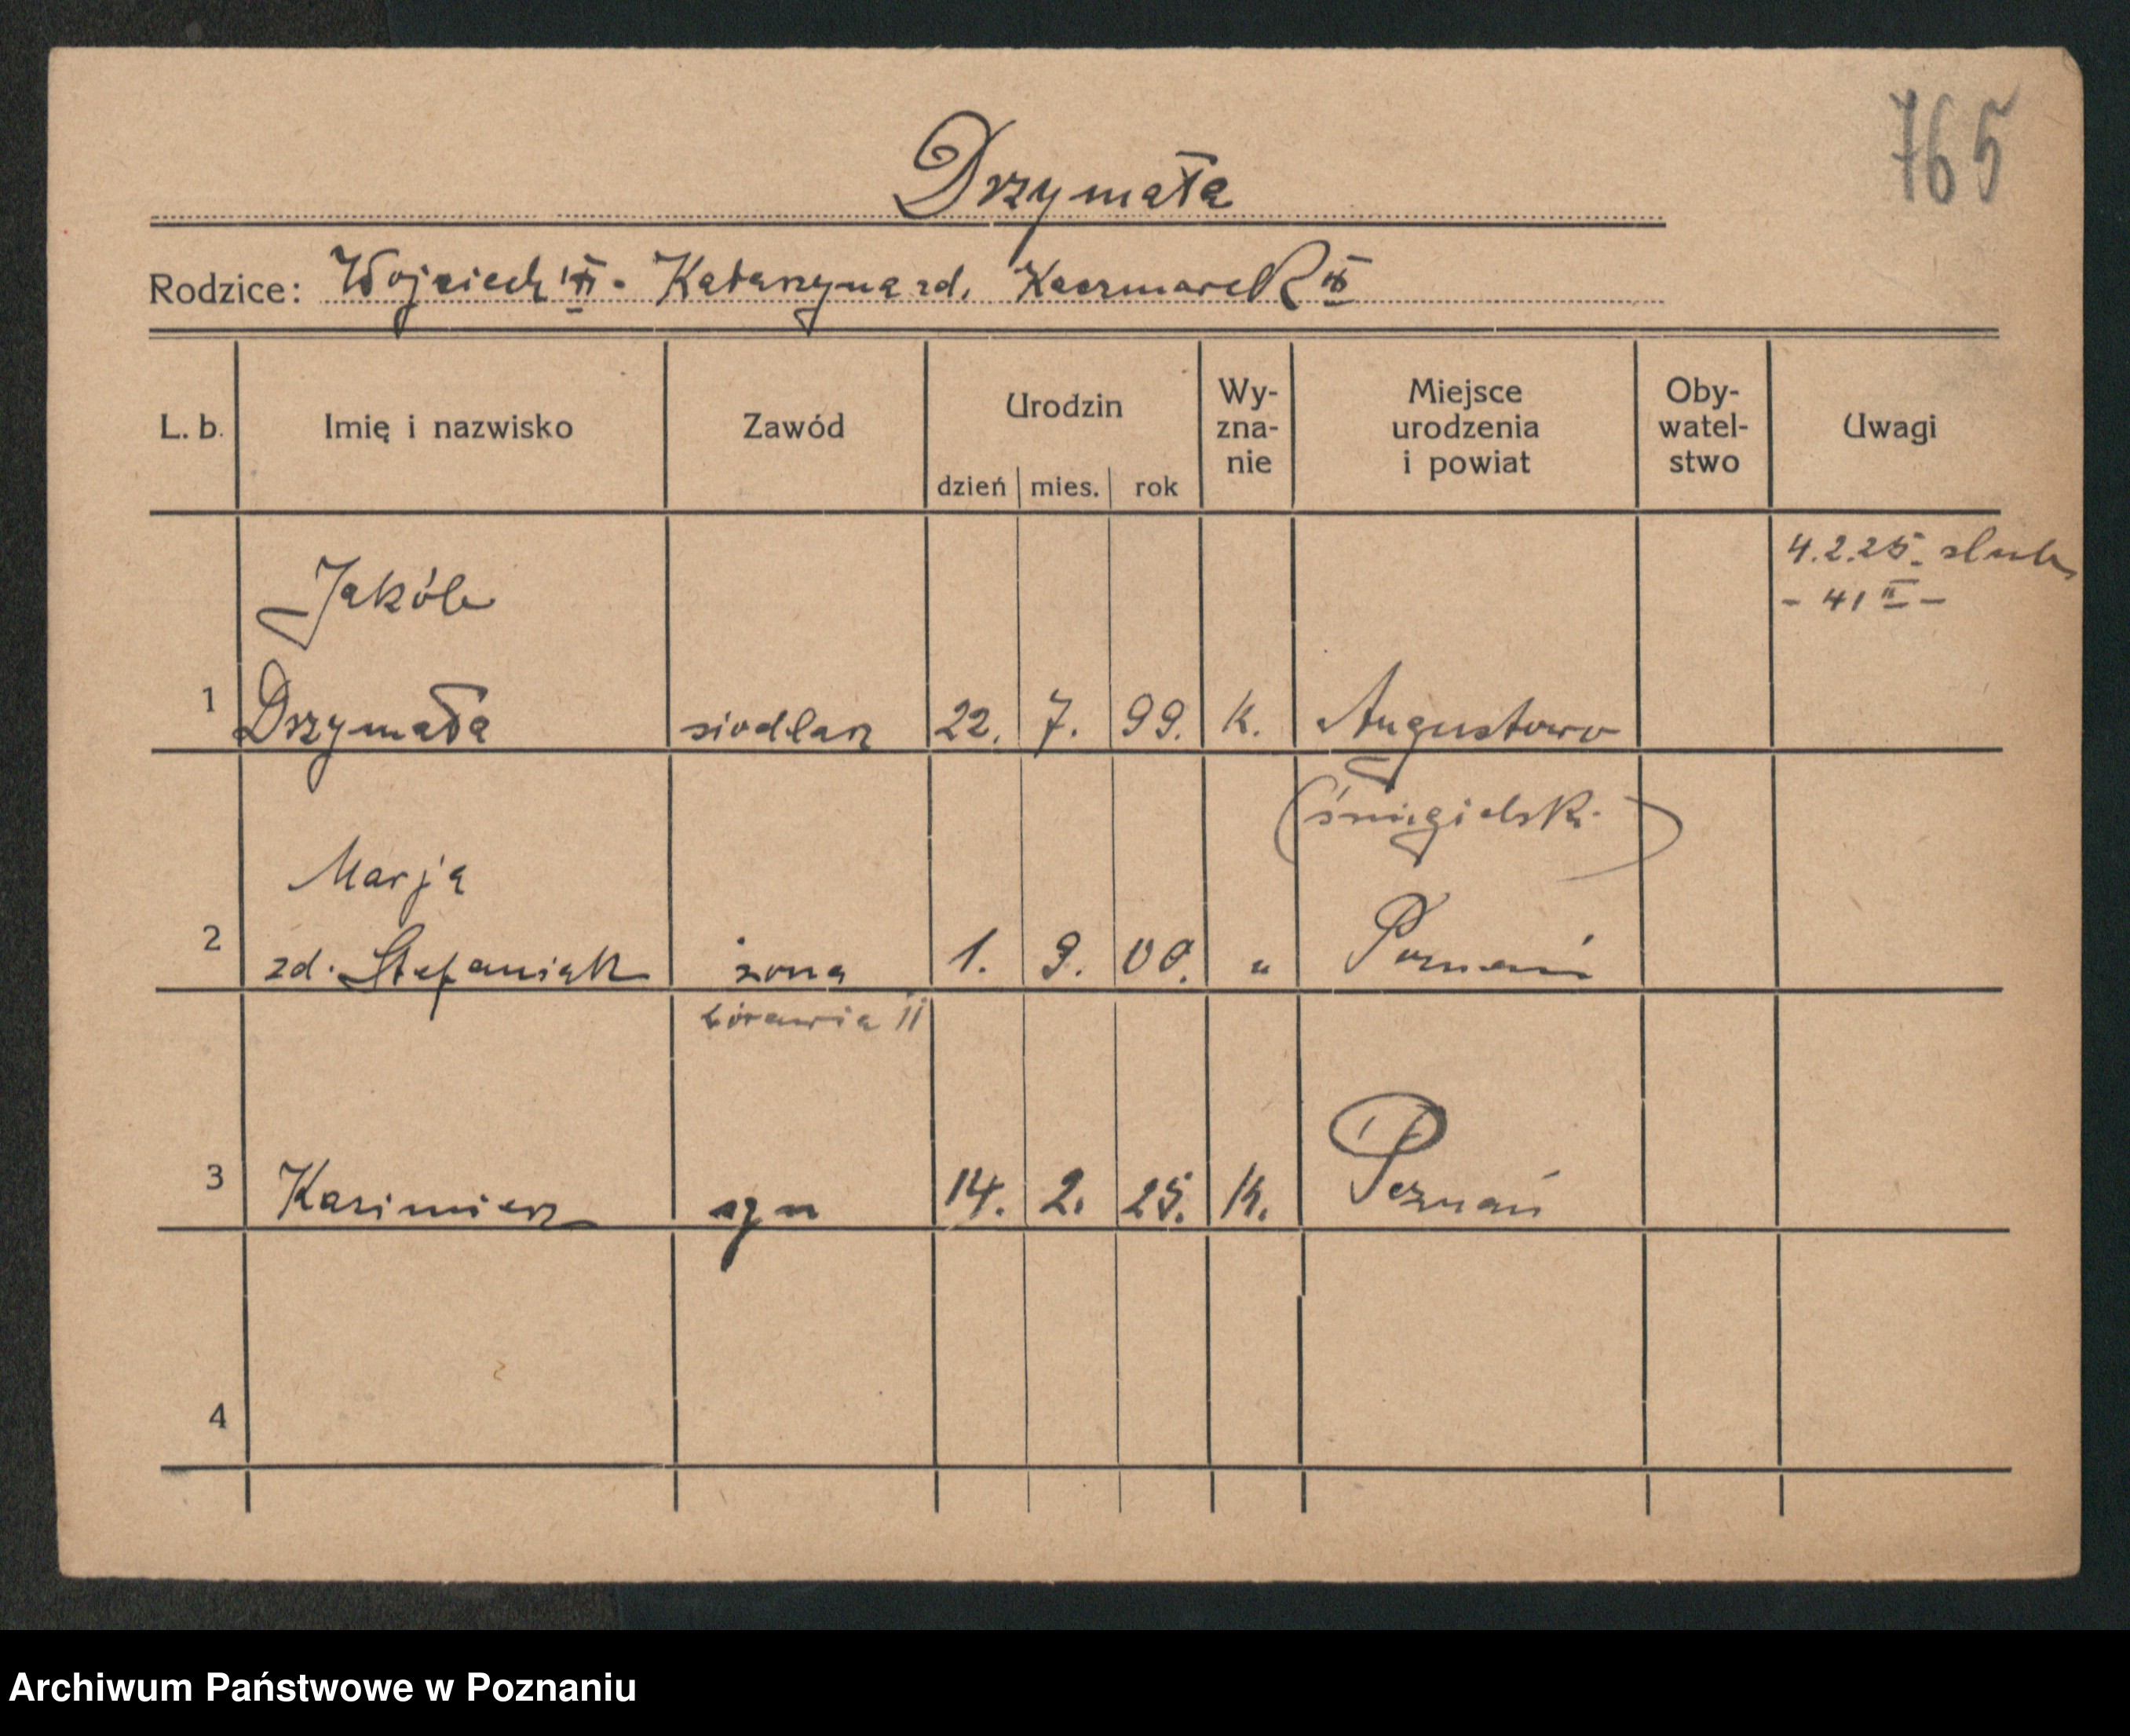 765
Drzymała
Rodzice: Wojciech - Katarzyna zd. Kaczmarek
L. b. Imię i nazwisko Zawód Urodzin dzień mies. rok Wy-zna-nie Miejsce urodzenia i powiat Oby-watel-stwo Uwagi
4.2.25. slub
- 41 II -
Jakób
1 Drzymała siodlarz 22. 7. 99. K. Augustowo
(śmigielsk.)
Marja
2 zd. Stefaniak żona 1. 9. 00. " Poznań
3 Kazimierz syn 14. 2. 25. K. Poznań
4
Archiwum Państwowe w Poznaniu